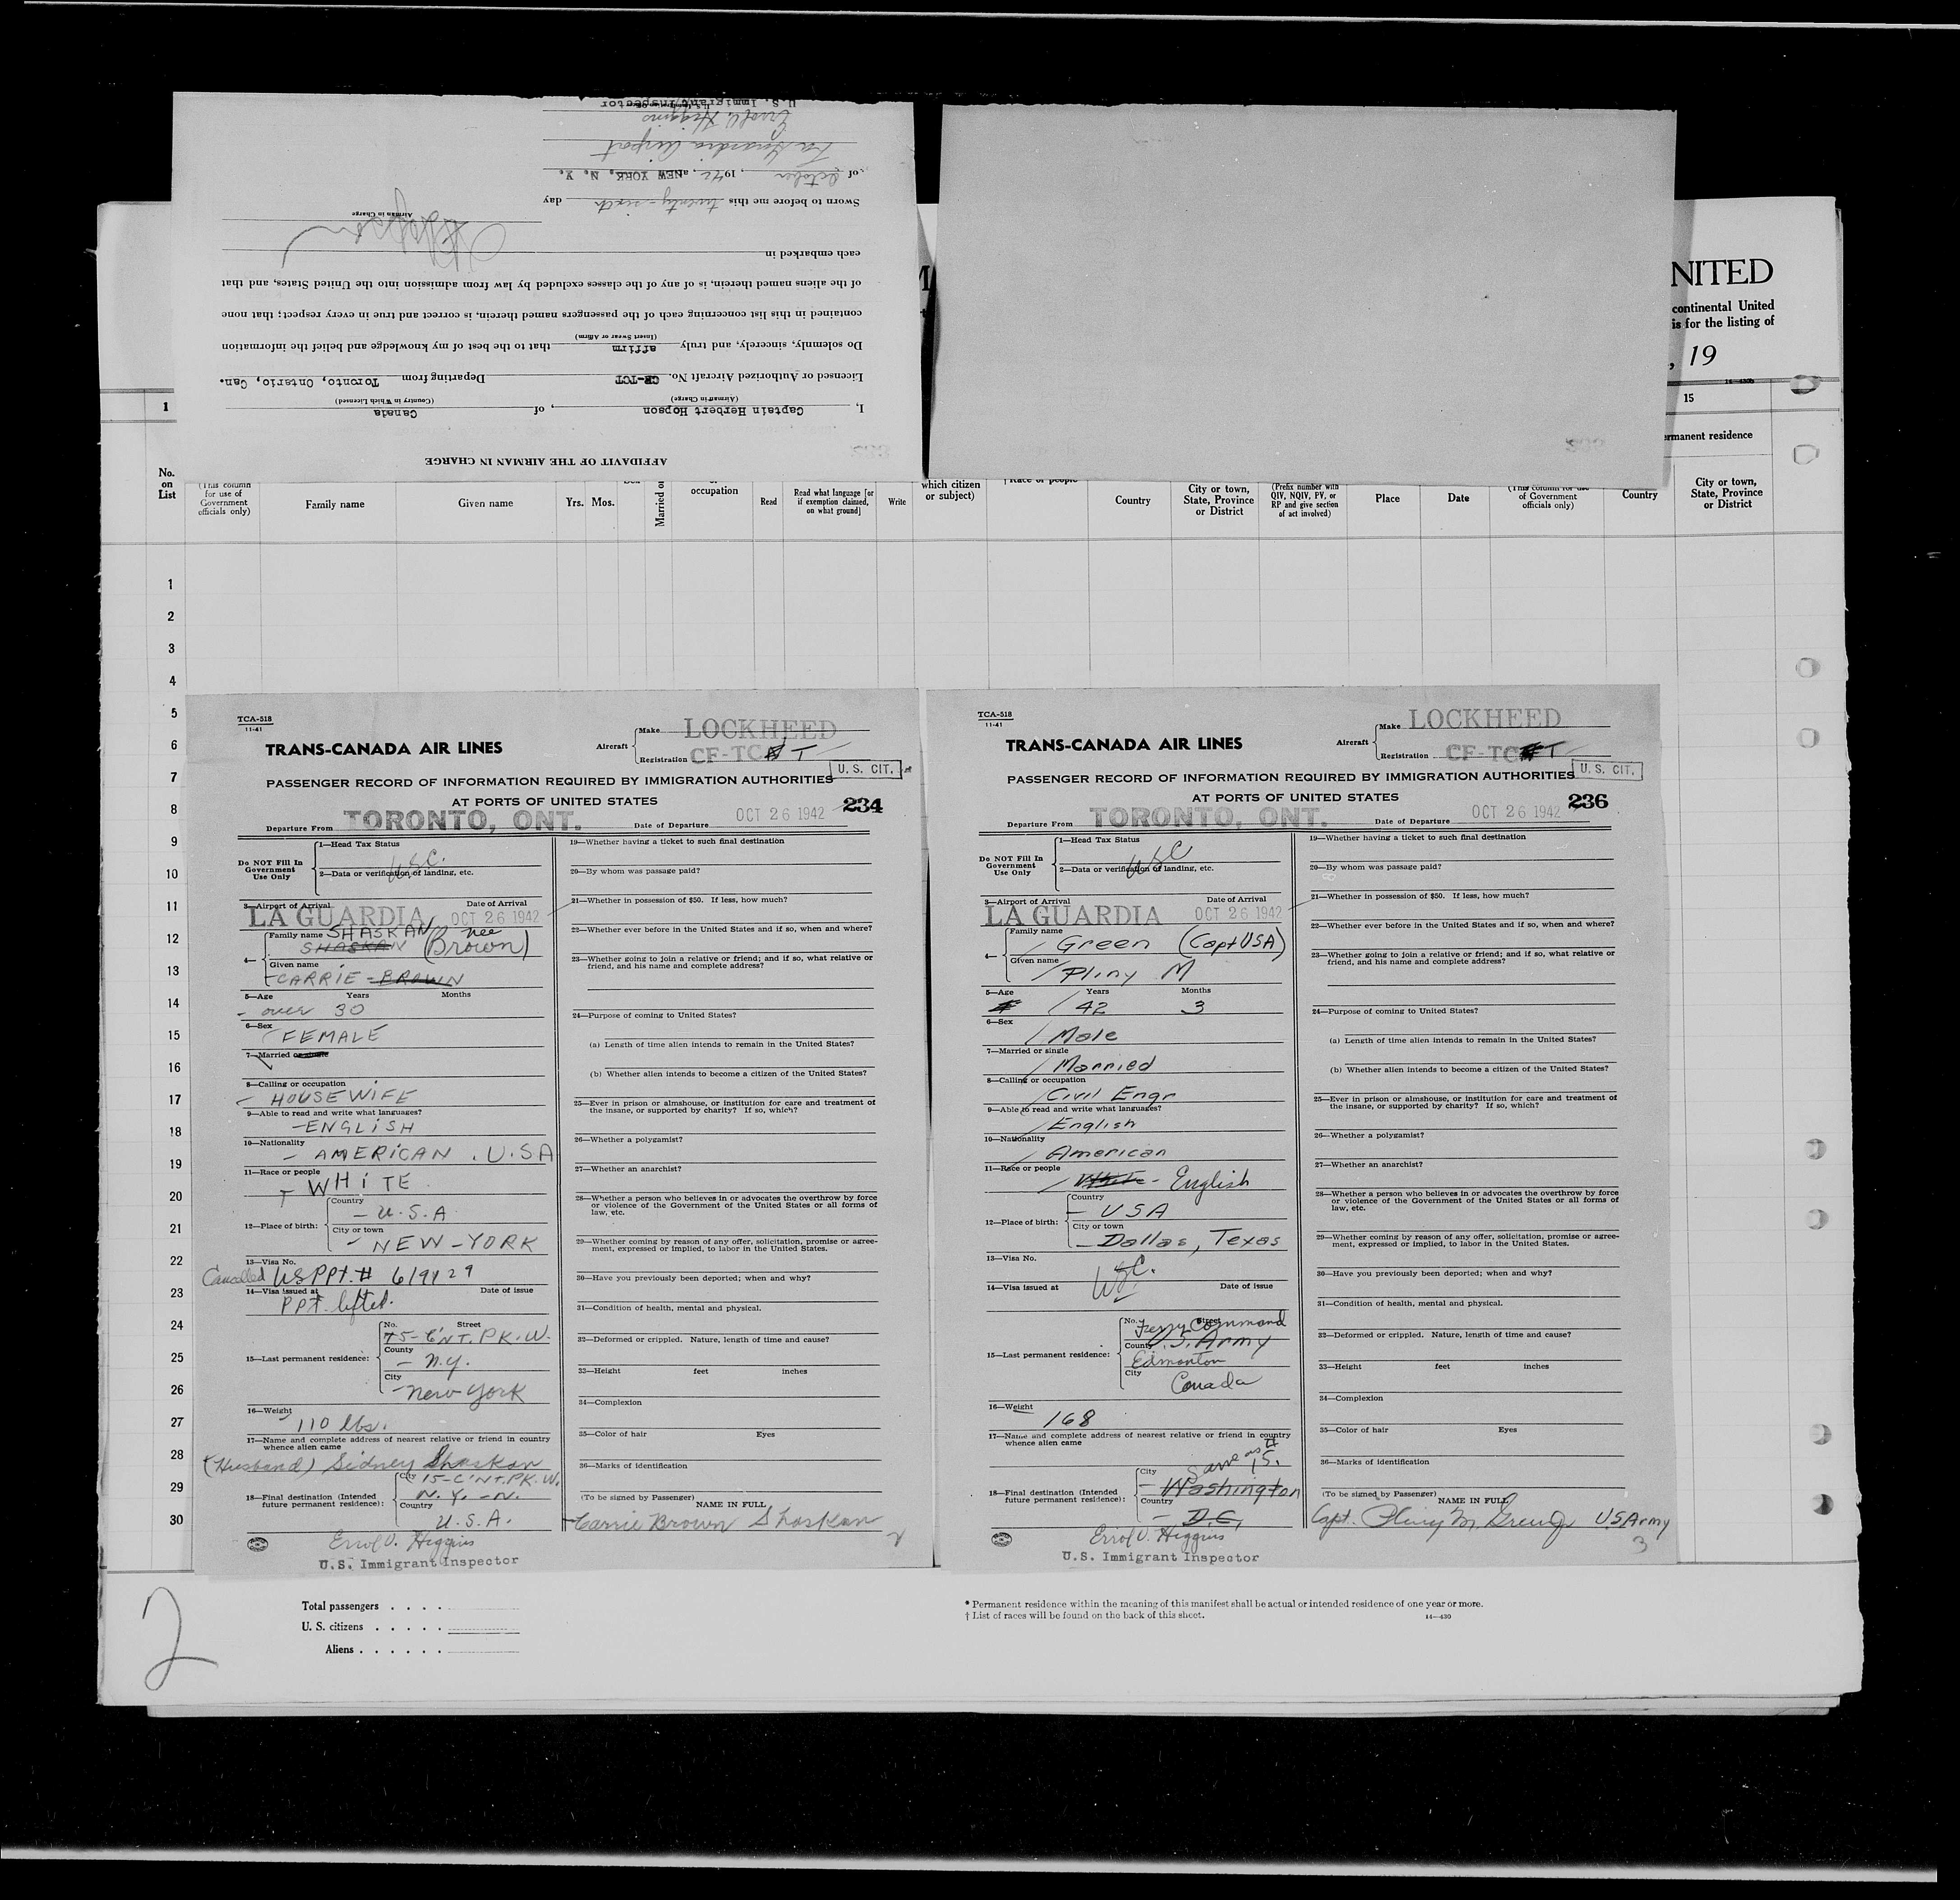 AFFIDAVIT OF THE AIRMAN IN CHARGE
I, Captain Herbert Hopson, of Canada
(Airman in Charge) (Country in Which Licensed)
Licensed or Authorized Aircraft No. CF-TCT Departing from Toronto, Ontario, Can.
Do solemnly, sincerely, and truly affirm that to the best of my knowledge and belief the information
(Insert Swear or Affirm)
contained in this list concerning each of the passengers named therein, is correct and true in every respect; that none
of the aliens named therein, is of any of the classes excluded by law from admission into the United States, and that
each embarked in
Airman in Charge
Sworn to before me this twenty-sixth day
of October, 1942, at NEW YORK, N. Y.
La Guardia Airport
Errol V. Higgins
U.S. Immigrant Inspector
NITED
continental United
is for the listing of
, 19
1
15
rmanent residence
No. on List
(This column for use of Government officials only)
Family name
Given name
Yrs. Mos.
Married or
occupation
Read
Read what language [or if exemption claimed, on what ground]
Write
which citizen or subject)
Country
City or town, State, Province or District
(Prefix number with QIV, NQIV, PV, or RP and give section of act involved)
Place
Date
(This column for use of Government officials only)
Country
City or town, State, Province or District
1
2
3
4
5
6
7
8
9
10
11
12
13
14
15
16
17
18
19
20
21
22
23
24
25
26
27
28
29
30
TCA-518
11-41
TRANS-CANADA AIR LINES
Aircraft
Make LOCKHEED
Registration CF-TC T
U. S. CIT.
PASSENGER RECORD OF INFORMATION REQUIRED BY IMMIGRATION AUTHORITIES
AT PORTS OF UNITED STATES
234
Departure From TORONTO, ONT. Date of Departure OCT 26 1942
Do NOT Fill In Government Use Only
1—Head Tax Status
USC.
2—Data or verification of landing, etc.
3—Airport of Arrival Date of Arrival
LA GUARDIA OCT 26 1942
4— Family name SHASKAN nee
SHASKAN (Brown)
Given name
CARRIE - BROWN
5—Age Years Months
- over 30
6—Sex
FEMALE
7—Married or single
8—Calling or occupation
- HOUSEWIFE
9—Able to read and write what languages?
- ENGLISH
10—Nationality
- AMERICAN . U.S.A
11—Race or people
WHITE
12—Place of birth:
Country
- U.S.A
City or town
- NEW-YORK
13—Visa No.
Cancelled US PPt. #
14—Visa issued at Date of issue
PPt lifted.
15—Last permanent residence:
No. Street
CNT. PK. W.
County
- N.Y.
City
- New York
16—Weight
110 lbs.
17—Name and complete address of nearest relative or friend in country whence alien came
(Husband) Sidney Shaskan
18—Final destination (Intended future permanent residence):
City 15-CNT. PK. W.
N.Y. - N.
Country
U.S.A.
Errol V. Higgins
U.S. Immigrant Inspector
19—Whether having a ticket to such final destination
20—By whom was passage paid?
21—Whether in possession of $50. If less, how much?
22—Whether ever before in the United States and if so, when and where?
23—Whether going to join a relative or friend; and if so, what relative or friend, and his name and complete address?
24—Purpose of coming to United States?
(a) Length of time alien intends to remain in the United States?
(b) Whether alien intends to become a citizen of the United States?
25—Ever in prison or almshouse, or institution for care and treatment of the insane, or supported by charity? If so, which?
26—Whether a polygamist?
27—Whether an anarchist?
28—Whether a person who believes in or advocates the overthrow by force or violence of the Government of the United States or all forms of law, etc.
29—Whether coming by reason of any offer, solicitation, promise or agreement, expressed or implied, to labor in the United States.
30—Have you previously been deported; when and why?
31—Condition of health, mental and physical.
32—Deformed or crippled. Nature, length of time and cause?
33—Height feet inches
34—Complexion
35—Color of hair Eyes
36—Marks of identification
(To be signed by Passenger)
NAME IN FULL
Carrie Brown Shaskan
2
TCA-518
11-41
TRANS-CANADA AIR LINES
Aircraft
Make LOCKHEED
Registration CF-TC T
U. S. CIT.
PASSENGER RECORD OF INFORMATION REQUIRED BY IMMIGRATION AUTHORITIES
AT PORTS OF UNITED STATES
236
Departure From TORONTO, ONT. Date of Departure OCT 26 1942
Do NOT Fill In Government Use Only
1—Head Tax Status
USC
2—Data or verification of landing, etc.
3—Airport of Arrival Date of Arrival
LA GUARDIA OCT 26 1942
4— Family name
Green (Capt USA)
Given name
Pliny M
5—Age Years Months
42 3
6—Sex
Male
7—Married or single
Married
8—Calling or occupation
Civil Engr
9—Able to read and write what languages?
English
10—Nationality
American
11—Race or people
White - English
12—Place of birth:
Country
- USA
City or town
- Dallas, Texas
13—Visa No.
USC.
14—Visa issued at Date of issue
15—Last permanent residence:
No. Street
Ferry Command
County U.S. Army
Edmonton
City
Canada
16—Weight
168
17—Name and complete address of nearest relative or friend in country whence alien came
Same as # 15.
18—Final destination (Intended future permanent residence):
City
- Washington
Country
- D.C.
Errol V. Higgins
U.S. Immigrant Inspector
19—Whether having a ticket to such final destination
20—By whom was passage paid?
21—Whether in possession of $50. If less, how much?
22—Whether ever before in the United States and if so, when and where?
23—Whether going to join a relative or friend; and if so, what relative or friend, and his name and complete address?
24—Purpose of coming to United States?
(a) Length of time alien intends to remain in the United States?
(b) Whether alien intends to become a citizen of the United States?
25—Ever in prison or almshouse, or institution for care and treatment of the insane, or supported by charity? If so, which?
26—Whether a polygamist?
27—Whether an anarchist?
28—Whether a person who believes in or advocates the overthrow by force or violence of the Government of the United States or all forms of law, etc.
29—Whether coming by reason of any offer, solicitation, promise or agreement, expressed or implied, to labor in the United States.
30—Have you previously been deported; when and why?
31—Condition of health, mental and physical.
32—Deformed or crippled. Nature, length of time and cause?
33—Height feet inches
34—Complexion
35—Color of hair Eyes
36—Marks of identification
(To be signed by Passenger)
NAME IN FULL
Capt. Pliny M. Green U.S. Army
3
Total passengers . . . .
U. S. citizens . . . . .
Aliens . . . . . .
* Permanent residence within the meaning of this manifest shall be actual or intended residence of one year or more.
† List of races will be found on the back of this sheet.
14—430
2